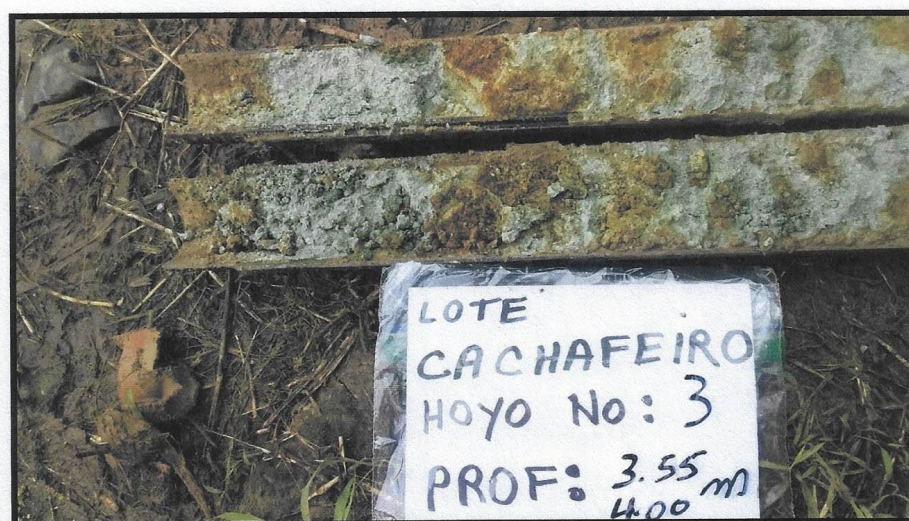 LOTE
CACHAFEIRO
HOYO No: 3
PROF: 3.55
4.00 m